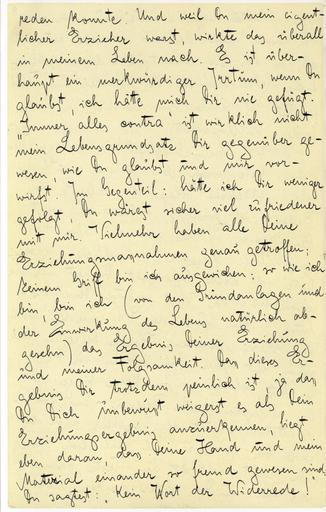 reden konnte. Und weil Du mein eigent-
licher Erzieher warst, wirkte das überall
in meinem Leben nach. Es ist über-
haupt ein merkwürdiger Irrtum, wenn Du
glaubst, ich hätte mich Dir nie gefügt.
„Immer alles contra“ ist wirklich nicht
mein Lebensgrundsatz Dir gegenüber ge-
wesen, wie Du glaubst und mir vor-
wirfst. Im Gegenteil: hätte ich Dir weniger
gefolgt, Du wärest sicher viel zufriedener
mit mir. Vielmehr haben alle Deine
Erziehungsmassnahmen genau getroffen;
keinem Griff bin ich ausgewichen; so wie ich
bin, bin ich (von den Grundanlagen und
der Einwirkung des Lebens natürlich ab-
gesehn) das Ergebnis Deiner Erziehung
und meiner Folgsamkeit. Dass dieses Er-
gebnis Dir trotzdem peinlich ist, ja dass
Du Dich unbewusst weigerst es als Dein
Erziehungsergebnis anzuerkennen, liegt
eben daran, dass Deine Hand und mein
Material einander so fremd gewesen sind.
Du sagtest: „Kein Wort der Widerrede!“